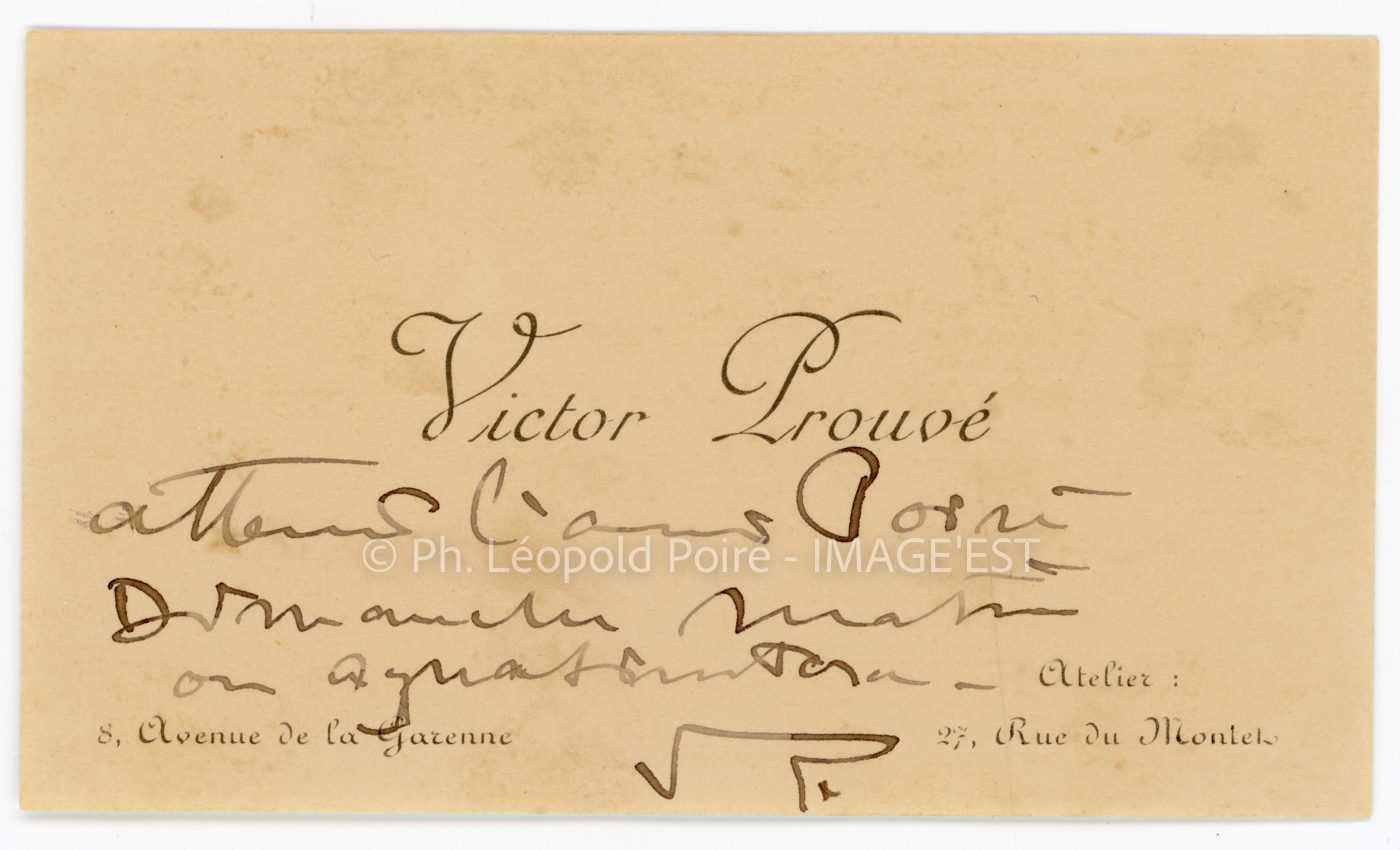 Victor Prouvé
attend l'ami Poiré
© Ph. Léopold Poiré - IMAGE'EST
Dimanche matin
on aquatintera -
Atelier :
8, Avenue de la Garenne
27, Rue du Montet
V P.